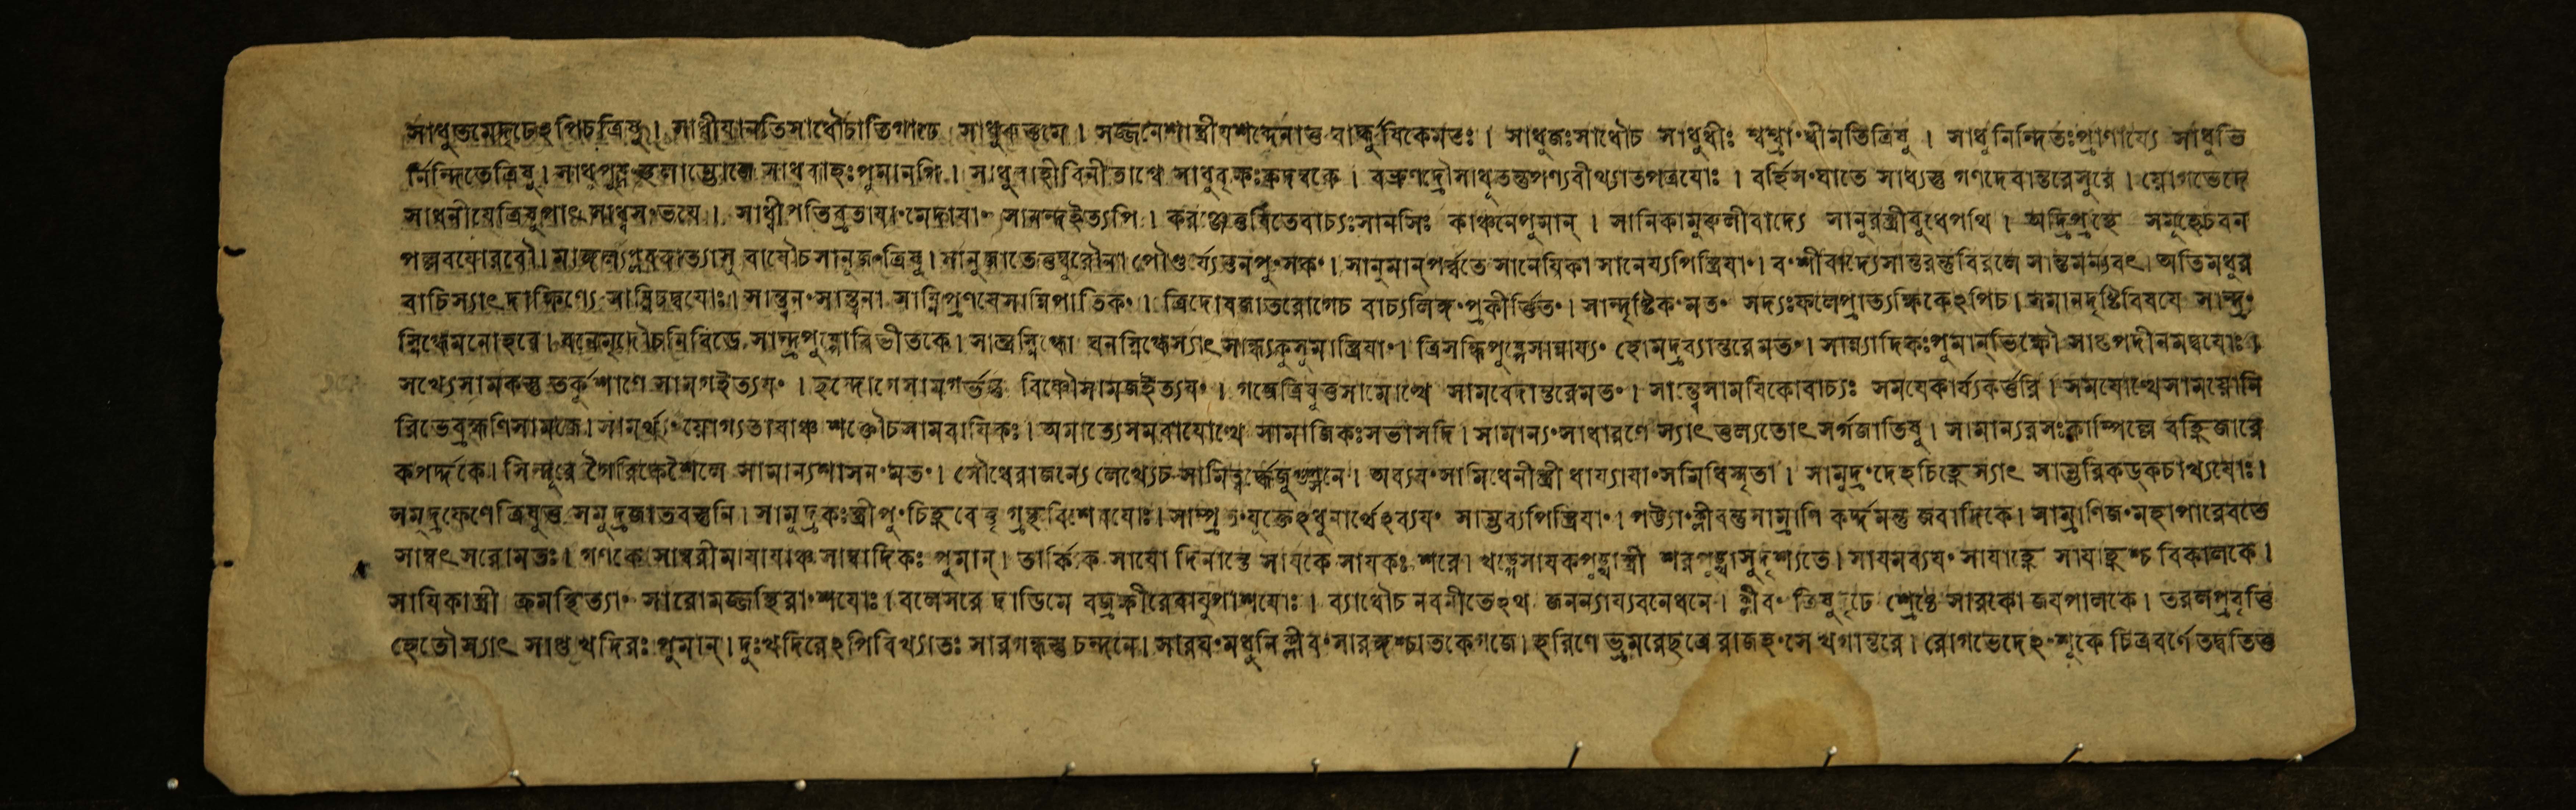 সাধুত্তমেদৃঢেঽপিচত্রিষু। সাধীযানতিসাধৌচাতিগাঢে সাধুরুত্তমে। সজ্জনেশাস্ত্রীযশব্দেনাস্ত বার্দ্ধুষিকেমতঃ। সাধুজঃসাধৌচ সাধুধীঃ শ্বশ্র্বাং ধীমতিত্রিষু। সাধুনিন্দিতঃপ্রাণায্যে সাধুভি
র্নিন্দিতেত্রিষু। সাধুপুষ্পং স্থলাম্ভোজে সাধবাহঃপুমানগ্নি। সাধুবাহীবিনীতাশ্বে সাধুবৃক্ষঃকদম্বকে। বরুণদ্রৌসাধৃতন্তুপণ্যবীথ্যাতপত্রযোঃ। বর্হিসংঘাতে সাধ্যস্তু গণদেবান্তরেসুরে। যোগভেদে
সাধনীযেত্রিষুপাৎ সাধ্বসংভযে। সাধ্বীপতিব্রতাযাংমেদাযাং সানন্দইত্যপি। করঞ্জেহর্ষিতেবাচ্যঃসানসিঃ কাঞ্চনেপুমান্। সানিকামুরুলীবাদ্যে সানুরস্ত্রীবুধেপথি। অদ্রিপ্রস্থে সমূহেচবন
পল্লবযোরবৌ। বংশীবাদ্যেসান্তরন্তুবিরলে সান্তমন্যবৎ। অতিমধুর
বাচিস্যাৎ দাক্ষিণ্যে সান্ত্বনংসান্ত্বনা সান্নিপাতিকং। ত্রিদোষজাতরোগেচ বাচ্যলিঙ্গংপ্রকীর্ত্তিতং। সান্দৃষ্টিকংমতং সদ্যঃফলেপ্রাত্যক্ষিকেঽপিচ। সমানদৃষ্টিবিষযে সান্দ্রং
স্নিগ্ধেমনোহরে। বনেমৃদৌচনিবিডে সান্দ্রপুষ্পোবিভীতকে। সান্দ্রস্নিগ্ধো ঘনস্নিগ্ধেস্যাৎসান্ধ্যকুসুমাস্ত্রিযাং। ত্রিসন্ধিপুষ্পেসান্নায্যং হোমদ্রব্যান্তরেমতং। সান্ন্যাসিকঃপুমান্ভিক্ষৌ সাপ্তপদীনমদ্বযোঃ।
সখ্যেসামকস্তু তর্কুশাণে সামগইত্যযং। ছন্দোগেসামগর্ত্তস্তু বিষ্ণৌসামজইত্যযং। গজেত্রিষুত্তসামোত্থে সামবেদান্তরেমতং। সান্ত্বেসামযিকোবাচ্যঃ সমযেকার্য্যকর্ত্তরি। সমযোত্থেসামযোনি
রিভেব্রহ্মণিসামজে। সামর্থ্যং যোগ্যতাযাঞ্চ শক্তৌচসামবাযিকঃ। অমাত্যেসমবাযোত্থে সামাজিকঃসভাসদি। সামান্যংসাধারণে স্যাৎ তুল্যতোৎসর্গজাতিষু। সামান্যরসঃকাম্পিল্লে বহ্নিজারে
কপর্দ্দকে। সিন্দূরে গৈরিকেশৈলে সামান্যশাসনংমতং। সৌধেরাজন্যে লেখ্যেচ সামিত্বর্দ্ধেজুগুপ্সনে। অব্যযংসামিধেনীস্ত্রী ধায্যাযাংসমিধিস্মৃতা। সামুদ্রংদেহচিহ্নেস্যাৎ সাম্ভরিকড্কচাখ্যযোঃ।
সমুদ্রফেণেত্রিষুত্ত সমুদ্রজাতবস্তুনি। সামুদ্রকঃস্ত্রীপুংচিহ্নবেত্তৃ গ্রন্থবিশেষযোঃ। সাম্প্রতংযুক্তেঽধুনার্থেঽব্যযং সাম্ভব্যপিস্ত্রিযাং। পট্যাংক্লীবন্তুসাম্রাণি কর্দ্দমন্তু জবাদিকে। সাম্রাণিজংমহাপারেবতে
সাম্বৎসরোমতঃ। গণকে সাম্বরীমাযাযাঞ্চ সাম্বাদিকঃ পুমান্। তার্কিকে সাযো দিনান্তে সাযকে সাযকঃ শরে। খড্গেসাযকপুঙ্খাস্ত্রী শরপুঙ্খাসুদৃশ্যতে। সাযমব্যযং সাযাহ্নে সাযাহ্নশ্চ বিকালকে।
সাযিকাস্ত্রী ক্রমস্থিত্যাং সারোমজ্জস্থিরাংশযোঃ। বলেসরে দাডিমে বজ্রক্ষীরেবাযুপাশযোঃ। ব্যাধৌচ নবনীতেঽথ জনন্যায্যবনেধনে। ক্লীবং ত্রিষুদৃঢে শ্রেষ্ঠে সারকো জযপালকে। তরলপ্রবৃত্তি
হেতৌস্যাৎ সাপ্তখদিরঃ পুমান্। দুঃখদিরেঽপিবিখ্যাতঃ সারগন্ধস্তু চন্দনে। সারঘংমধুনিক্লীবংসারঙ্গশ্চাতকেগজে। হরিণে ভ্রমরেছত্রে রাজহংসে খগান্তরে। রোগভেদেহংশুকে চিত্রবর্ণে তদ্বতিত্ত